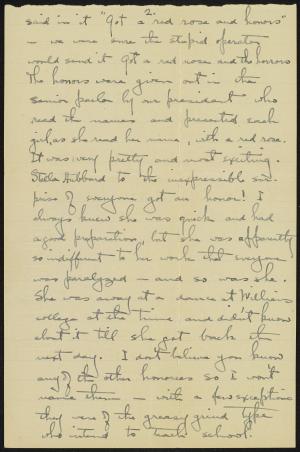 2.
said in it "Got a red rose and honors"
- we were sure the stupid operator
would send it Got a red rose and the horrors
The honors were given out in the
senior parlor by our president who
read the names and presented each
girl, as she read her name, with a red rose.
It was very pretty and most exciting.
Stella Hubbard to the inexpressible sur-
prise of everyone got an honor! I
always knew she was quick and had
a good preparation, but she was apparently
so indifferent to her work that everyone
was paralyzed - and so was she.
She was away at a dance at Williams
college at the time and didn't know
about it till she got back the
next day. I don't believe you know
any of the other honorees so I won't
name them - with a few exceptions
they were of the greasy grind type
who intend to teach school.